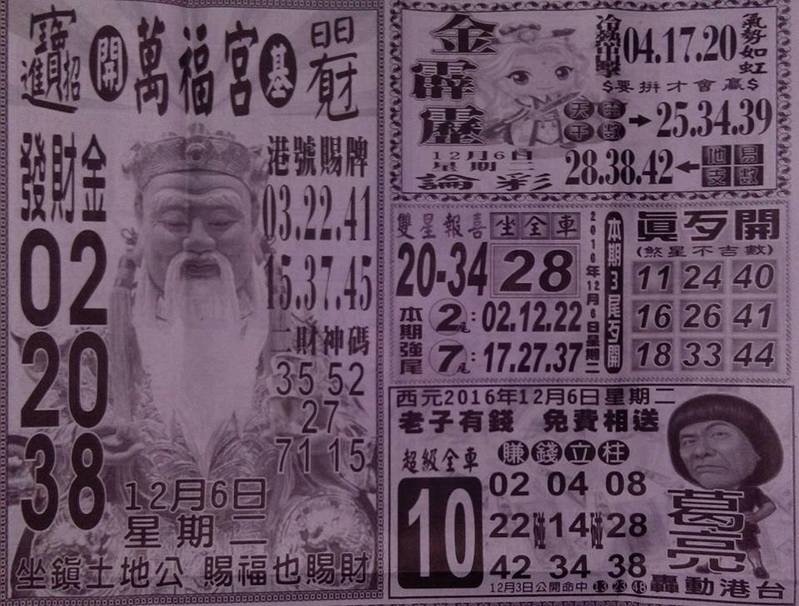 招財進寶
開
萬福宮
基
發財金
02
20
38
港號賜牌
03.22.41
15.37.45
二財神碼
35 52
27
71 15
12月6日
星期二
坐鎮土地公 賜福也賜財
金霹靂
冷熱出擊
04.17.20
氣勢如虹
$要拼才會贏$
天干
→25.34.39
12月6日
星期二
論彩
28.38.42←
地支
雙星報喜
坐全車
20-34
28
本期強尾
2尾:02.12.22
7尾:17.27.37
2016年12月6日星期二
本期3尾歹開
真歹開
(煞星不吉數)
11 24 40
16 26 41
18 33 44
西元2016年12月6日星期二
老子有錢 免費相送
超級全車
10
賺錢立柱
02 04 08
22碰14碰28
42 34 38
12月3日公開命中 13 23 48
葛亮
轟動港台